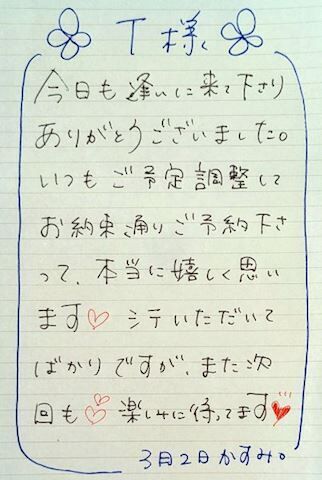 T様
今日も逢いに来て下さり
ありがとうございました。
いつもご予定調整して
お約束通りご予約下さ
って、本当に嬉しく思い
ます♡ シテいただいて
ばかりですが、また次
回も♡ 楽しみに待ってます♥
3月2日 かすみ。